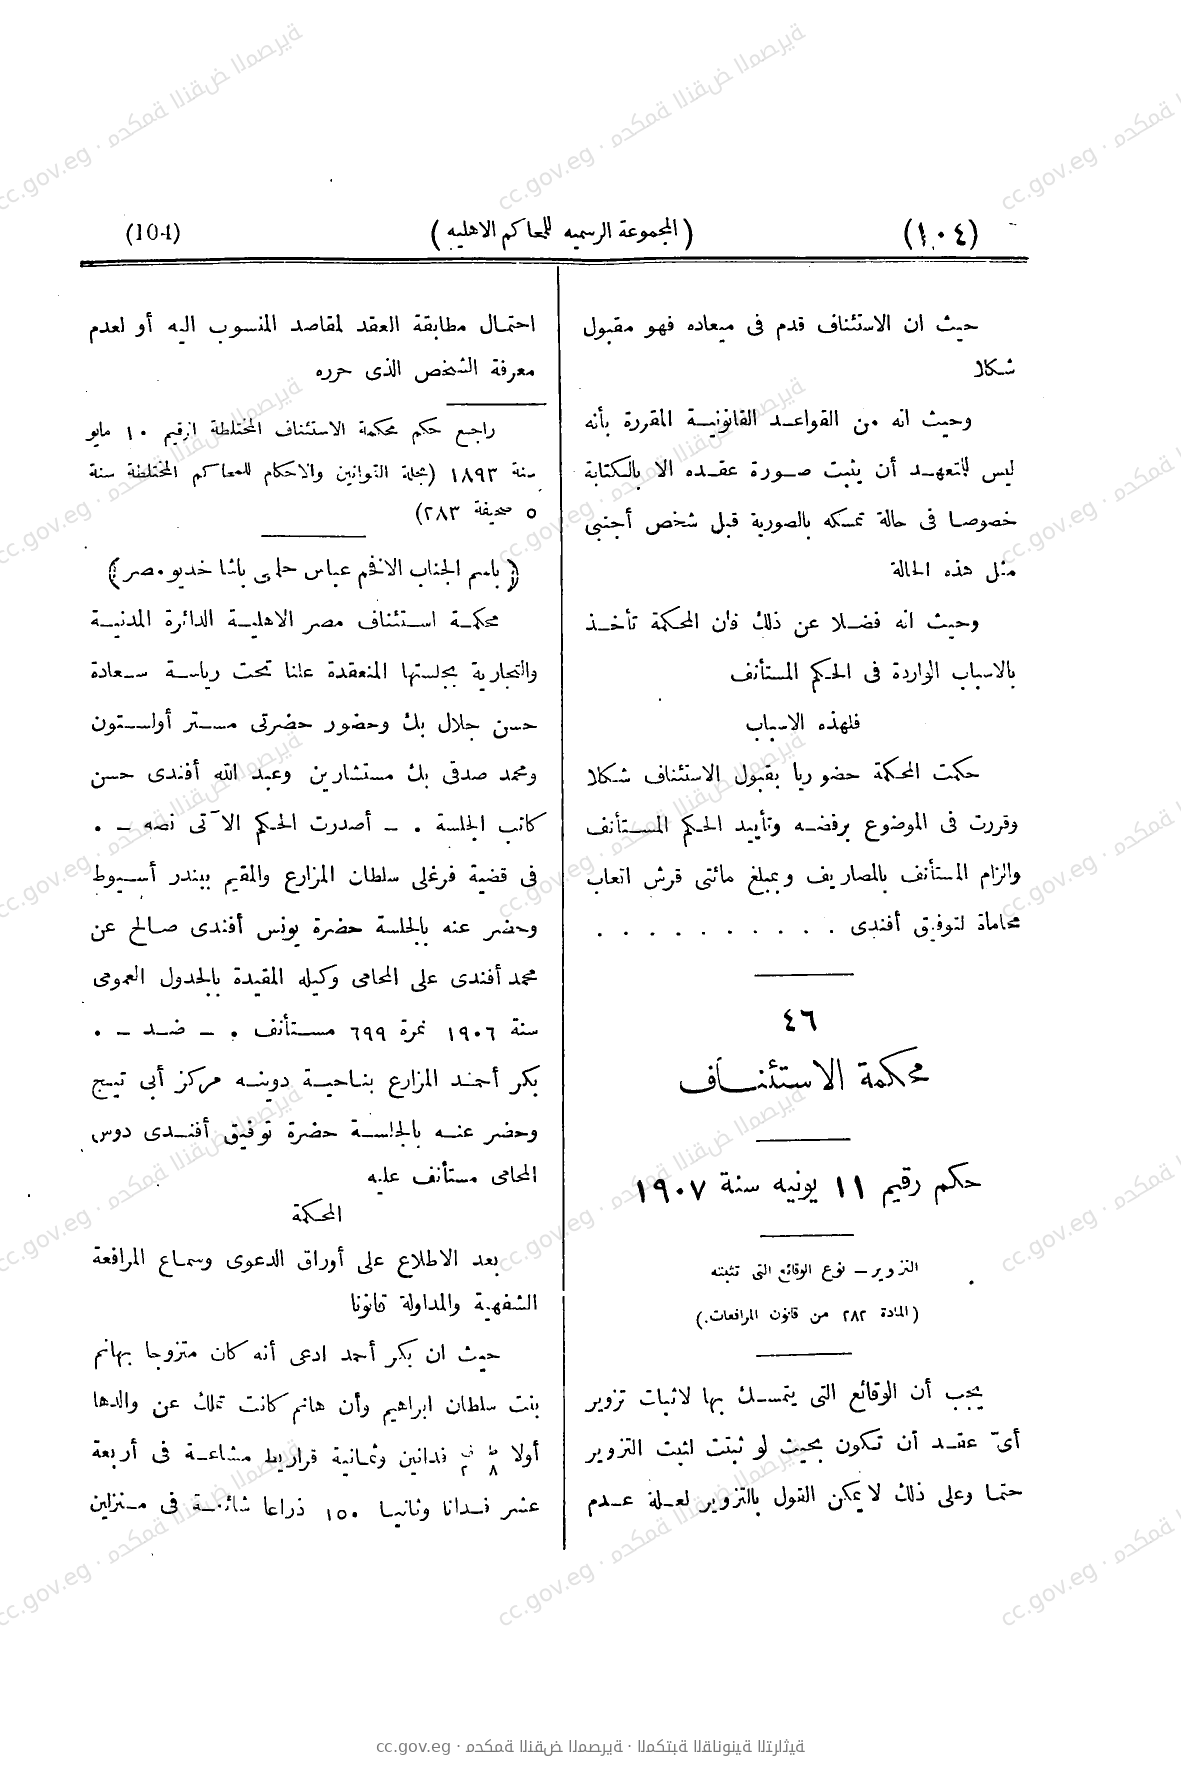 (١٠٤)
(المجموعة الرسميه للمحاكم الاهليه)
(104)
حيث ان الاستئناف قدم فى ميعاده فهو مقبول
شكلا
وحيث انه من القواعد القانونية المقررة بأنه
ليس للمتعهد أن يثبت صورة عقده الا بالكتابة
خصوصا فى حالة تمسكه بالصورية قبل شخص أجنبى
مثل هذه الحالة
وحيث انه فضلا عن ذلك فان المحكمة تأخذ
بالاسباب الواردة فى الحكم المستأنف
فلهذه الاسباب
حكمت المحكمة حضوريا بقبول الاستئناف شكلا
وقررت فى الموضوع برفضه وتأييد الحكم المستأنف
والزام المستأنف بالمصاريف وبمبلغ مائتى قرش اتعاب
محاماة لتوفيق أفندى . . . . . . . . . .
٤٦
محكمة الاستئناف
حكم رقيم ١١ يونيه سنة ١٩٠٧
التزوير — نوع الوقائع التى تثبته
(المادة ٢٨٢ من قانون المرافعات.)
يجب أن الوقائع التى يتمسك بها لاثبات تزوير
أىّ عقد أن تكون بحيث لو ثبتت لثبت التزوير
حتما وعلى ذلك لا يمكن القول بالتزوير لعلة عدم
احتمال مطابقة العقد لمقاصد المنسوب اليه أو لعدم
معرفة الشخص الذى حرره
راجع حكم محكمة الاستئناف المختلطة الرقيم ١٠ مايو
سنة ١٨٩٣ (مجلة القوانين والاحكام للمحاكم المختلطة سنة
٥ صحيفة ٢٨٣)
(باسم الجناب الافخم عباس حلمى باشا خديو مصر)
محكمة استئناف مصر الاهلية الدائرة المدنية
والتجارية بجلستها المنعقدة علنا تحت رياسة سعادة
حسن جلال بك وحضور حضرتى مستر أولستون
ومحمد صدقى بك مستشارين وعبد الله أفندى حسن
كاتب الجلسة . — أصدرت الحكم الآتى نصه — .
فى قضية فرغلى سلطان المزارع والمقيم ببندر أسيوط
وحضر عنه بالجلسة حضرة يونس أفندى صالح عن
محمد أفندى على المحامى وكيله المقيدة بالجدول العمومى
سنة ١٩٠٦ نمرة ٦٩٩ مستأنف . — ضد — .
بكر أحمد المزارع بناحية دوينه مركز أبى تيج
وحضر عنه بالجلسة حضرة توفيق أفندى دوس
المحامى مستأنف عليه
المحكمة
بعد الاطلاع على أوراق الدعوى وسماع المرافعة
الشفهية والمداولة قانونا
حيث ان بكر أحمد ادعى أنه كان متزوجا بهانم
بنت سلطان ابراهيم وأن هانم كانت تملك عن والدها
أولا ط ٨ ف ٢ فدانين وثمانية قراريط مشاعة فى أربعة
عشر فدانا وثانيا ١٥٠ ذراعا شائعة فى منزلين
cc.gov.eg · محكمة النقض المصرية · المكتبة القانونية التراثية